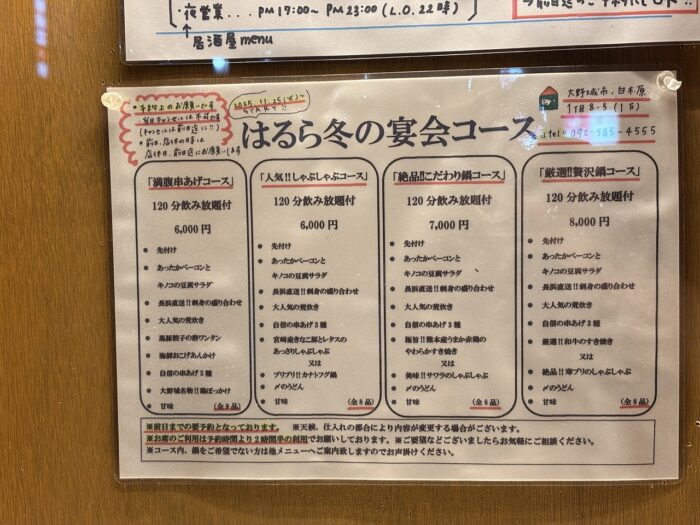 ・夜営業...PM17:00~PM23:00(L.O.22時)
↑
居酒屋menu
・予約上のお願いです
当日キャンセルは不可です
(キャンセルは前日迄に!!)
・前日、店休の時は
店休日、前日迄にお願いします
2025.11.25(火)~
大野城市、白木原
1丁目8-5(1F)
tel 092-585-4555
はるら冬の宴会コース
「満腹串あげコース」
120分飲み放題付
6,000円
● 先付け
● あったかベーコンと
キノコの豆腐サラダ
● 長浜直送!!刺身の盛り合わせ
● 大人気の荒炊き
● 黒豚餃子の酢ワンタン
● 海鮮おこげあんかけ
● 自信の串あげ5種
● 大野城名物!!鶏ぼっかけ
● 甘味 (全9品)
「人気!!しゃぶしゃぶコース」
120分飲み放題付
6,000円
● 先付け
● あったかベーコンと
キノコの豆腐サラダ
● 長浜直送!!刺身の盛り合わせ
● 大人気の荒炊き
● 自信の串あげ3種
● 宮崎産きなこ豚とレタスの
あっさりしゃぶしゃぶ
又は
● プリプリ!!カナトフグ鍋
● 〆のうどん
● 甘味 (全8品)
「絶品!!こだわり鍋コース」
120分飲み放題付
7,000円
● 先付け
● あったかベーコンと
キノコの豆腐サラダ
● 長浜直送!!刺身の盛り合わせ
● 大人気の荒炊き
● 自信の串あげ3種
● 極旨!!熊本産うまか赤鶏の
やわらかすき焼き
又は
● 美味!!サワラのしゃぶしゃぶ
● 〆のうどん
● 甘味 (全8品)
「厳選!!贅沢鍋コース」
120分飲み放題付
8,000円
● 先付け
● あったかベーコンと
キノコの豆腐サラダ
● 長浜直送!!刺身の盛り合わせ
● 大人気の荒炊き
● 自信の串あげ3種
● 厳選!!和牛のすき焼き
又は
● 絶品!!寒ブリのしゃぶしゃぶ
● 〆のうどん
● 甘味 (全8品)
※前日までの要予約となっております。 ※天候、仕入れの都合により内容が変更する場合がございます。
※お席のご利用は予約時間より2時間半の利用でお願いしております。※ご要望などございましたらお気軽にご相談ください。
※コース内、鍋をご希望でない方は他メニューへご案内致しますのでお声掛けください。